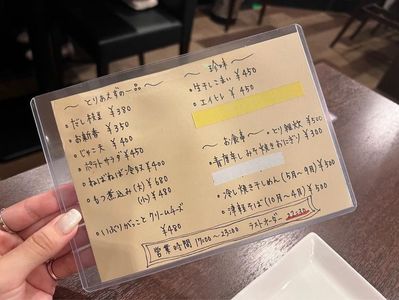 〜とりあえずの一品〜
・だし枝豆 ¥380
・お新香 ¥350
・じゃこ天 ¥400
・ポテトサラダ ¥450
・ねばねば冷奴 ¥400
・もつ煮込み(大) ¥680
(小) ¥480
・いぶりがっことクリームチーズ
¥480
〜珍味〜
・生干しこまい ¥450
・エイヒレ ¥450
〜お食事〜
・とり雑炊 ¥500
みそ焼きおにぎり ¥300
・冷し焼き干しめん(5月〜9月) ¥500
・津軽そば(10月〜4月) ¥500
営業時間 17:00〜23:00 ラストオーダー 22:30